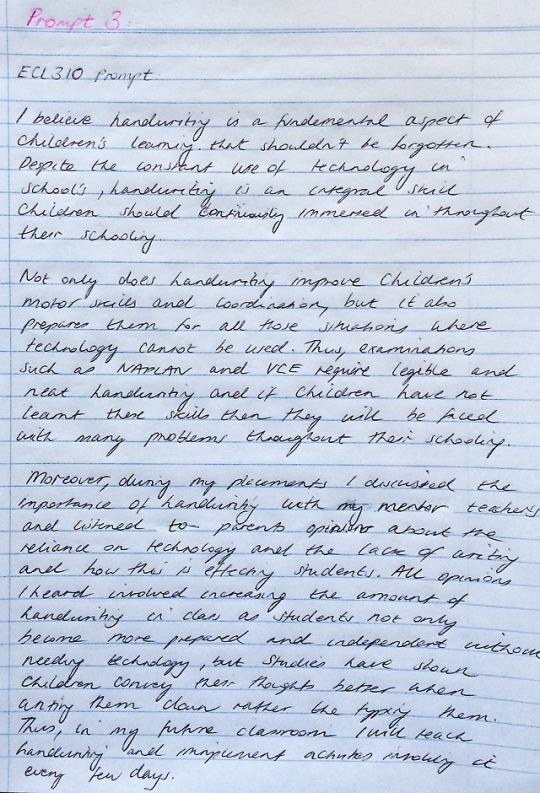 Prompt 3:
ECL310 Prompt
I believe handwriting is a fundemental aspect of
Children's learning that shouldn't be forgotten.
Despite the constant use of technology in
school's, handwriting is an integral skill
Children should continiously immersed in throughout
their schooling.
Not only does handwriting improve Children's
motor skills and coordination, but it also
prepares them for all those situations where
technology cannot be used. Thus, examinations
such as NAPLAN and VCE require legible and
neat handwriting and if Children have not
learnt these skills then they will be faced
with many problems throughout their schooling.
Moreover, during my placements I discussed the
importance of handwriting with my mentor teachers
and listened to parents opinions about the
reliance on technology and the lack of writing
and how this is effecting students. All opinions
I heard involved increasing the amount of
handwriting in class as students not only
become more prepared and independent without
needing technology, but studies have shown
Children convey their thoughts better when
writing them down rather the typing them.
Thus, in my future classroom I will teach
handwriting and implement activites involving it
every few days.